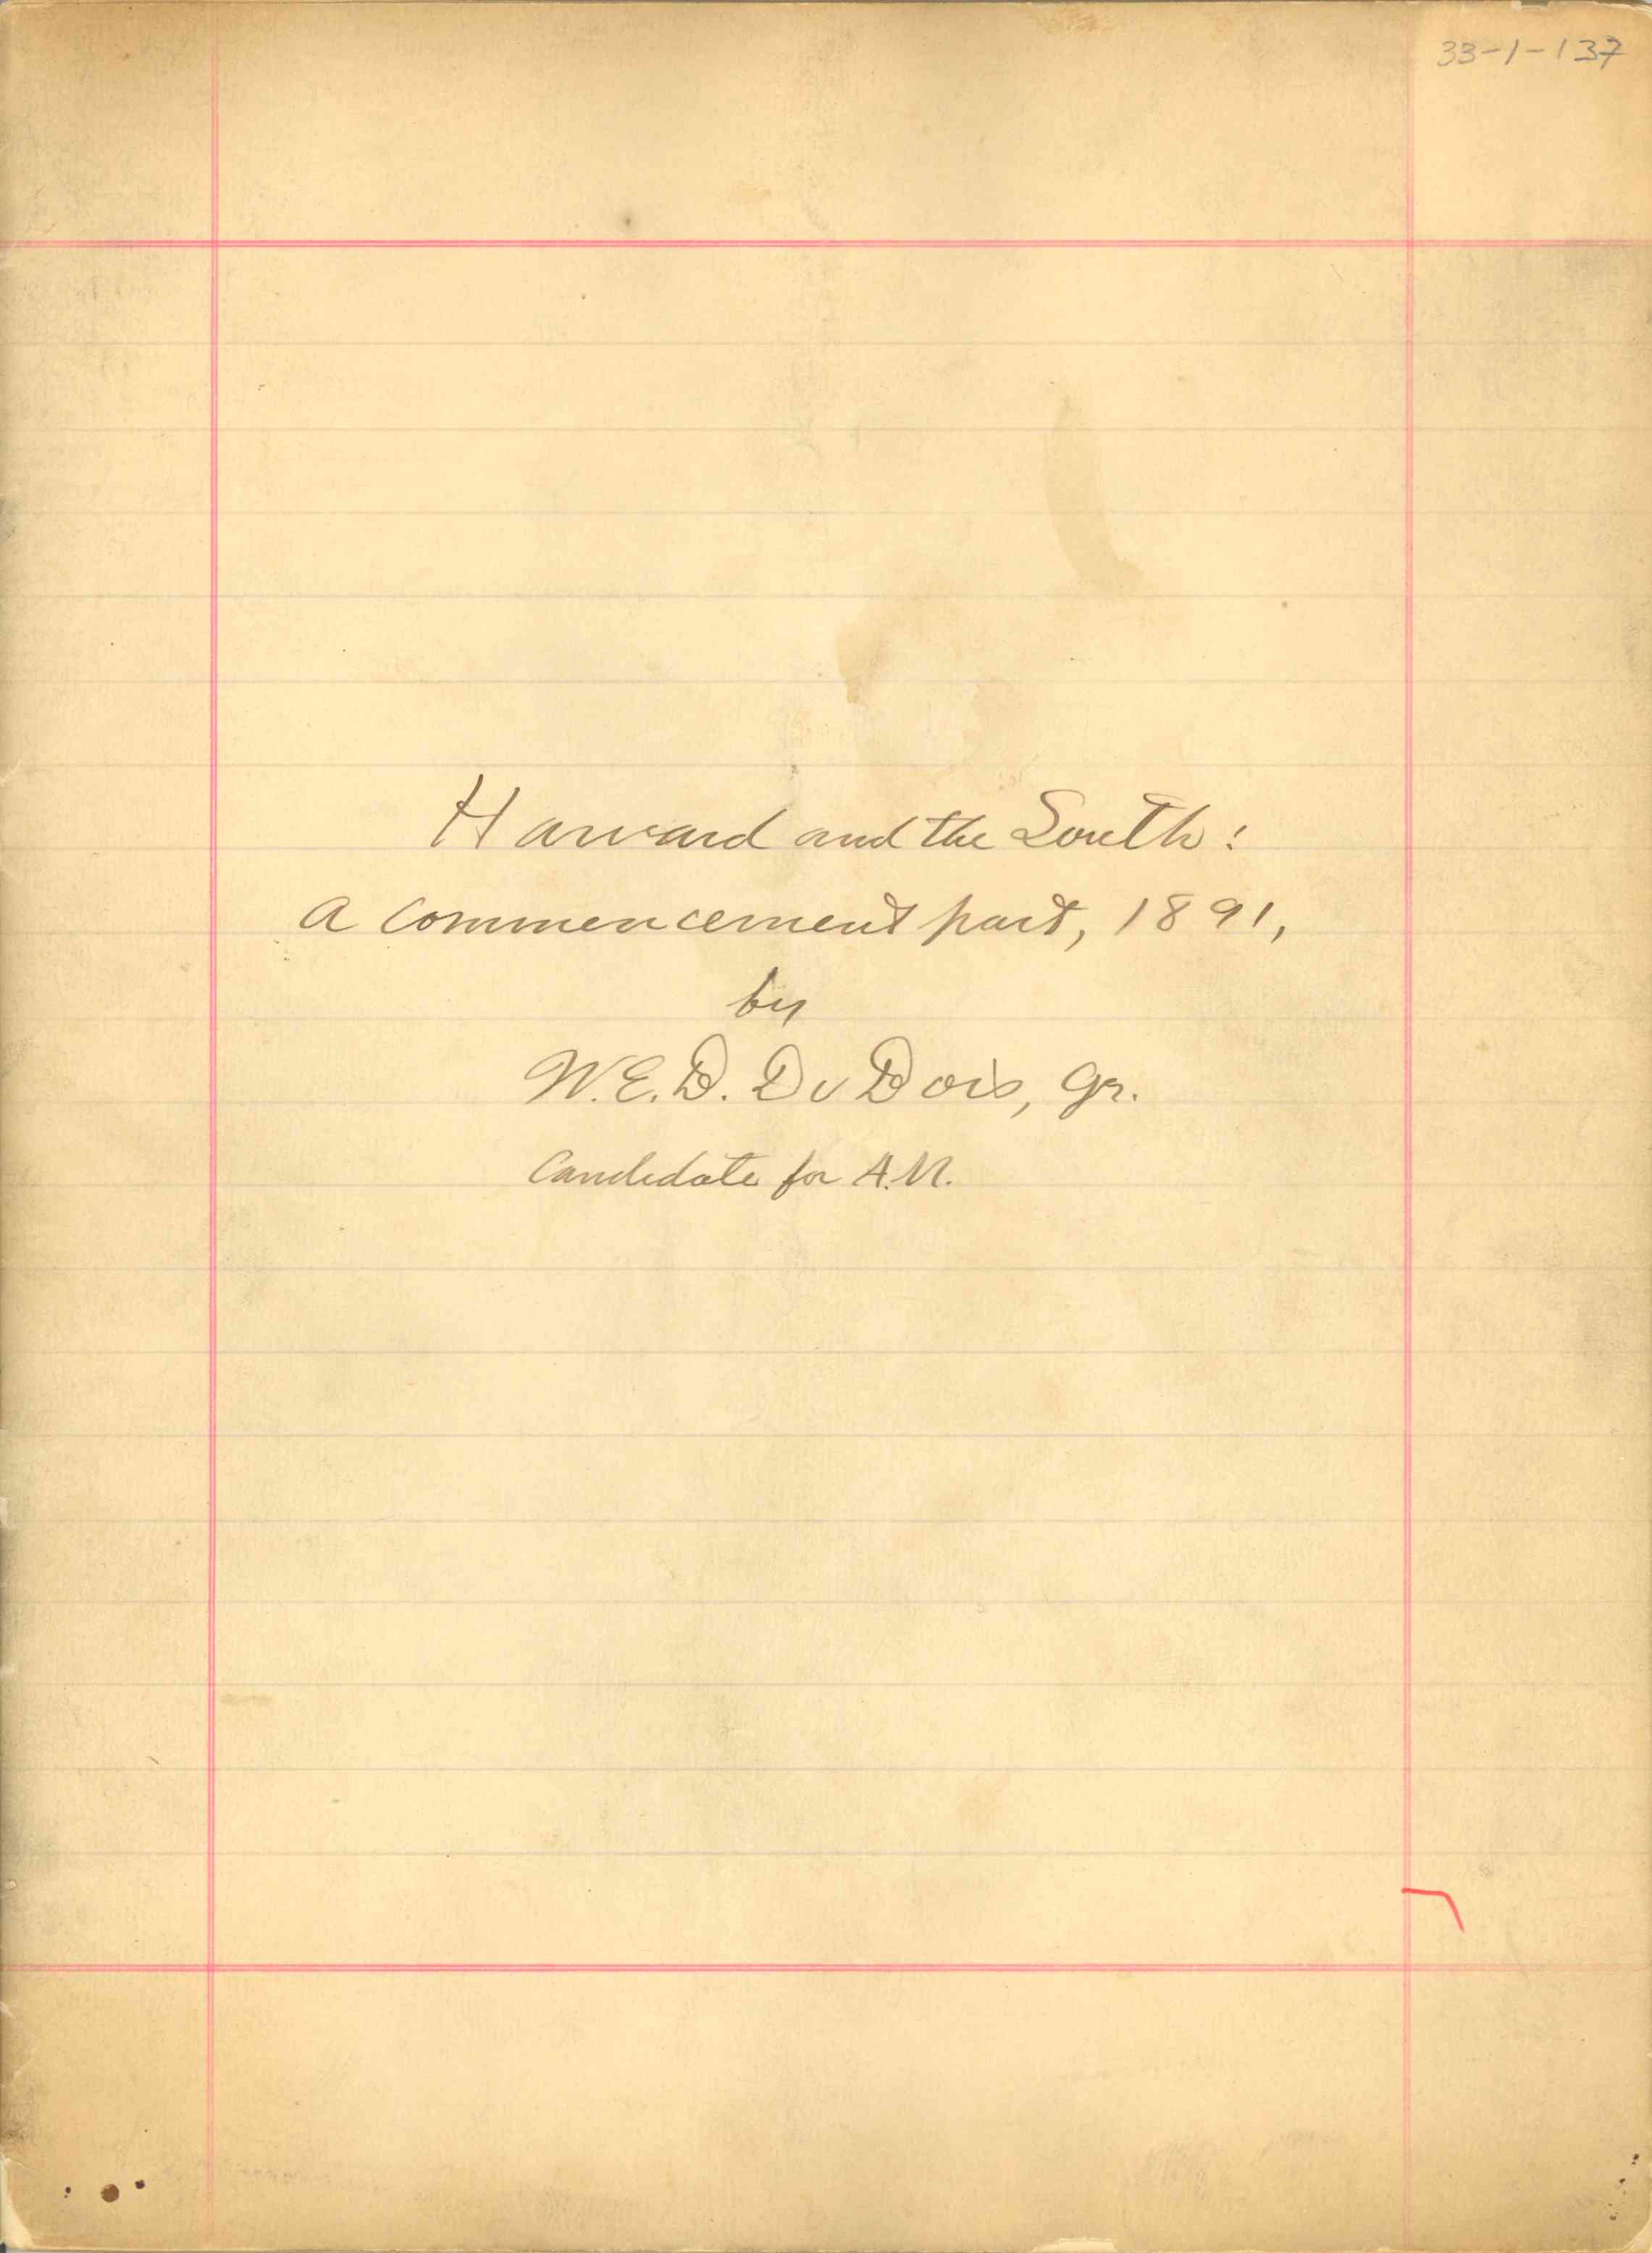 33-1-137
Harvard and the South:
A Commencement part, 1891,
by
W.E.B. Du Bois, Gr.
Candidate for A.M.